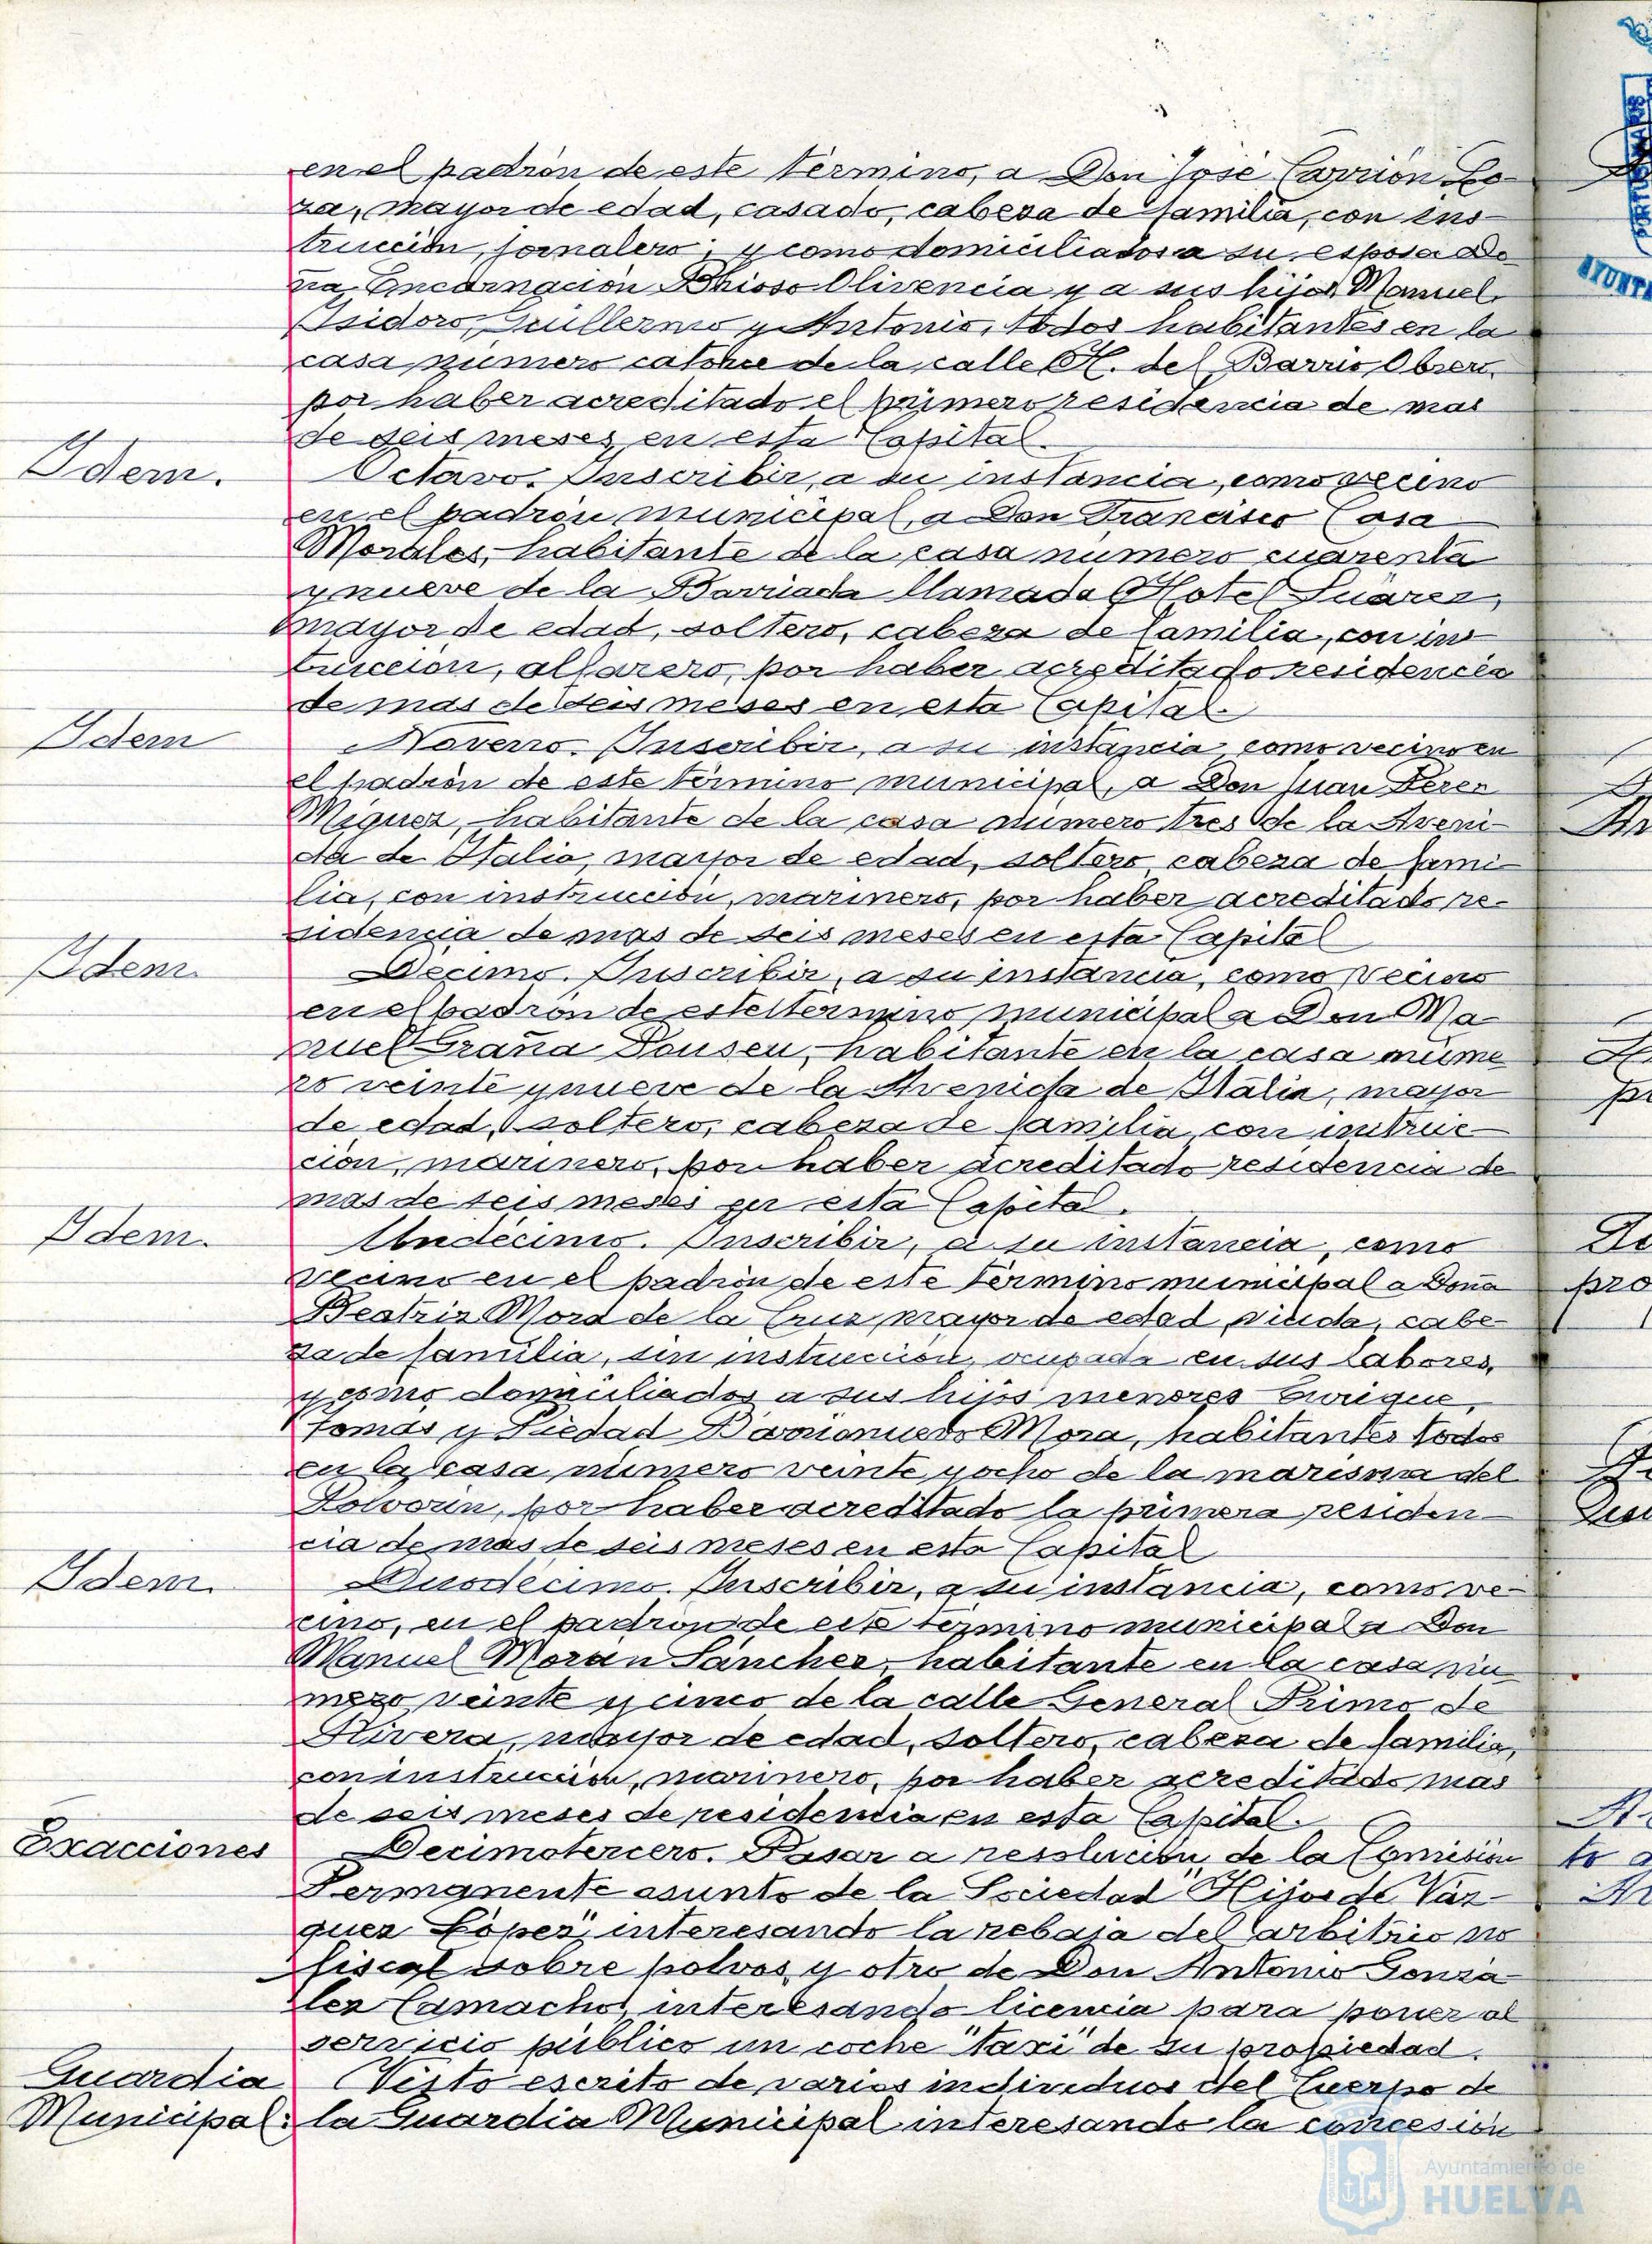 en el padrón de este término, a Don José Carrión Lo-
za, mayor de edad, casado, cabeza de familia, con ins-
trucción, jornalero; y como domiciliados a su esposa Do-
ña Encarnación Olivencia y a sus hijos Manuel,
Isidoro, Guillermo y Antonio, todos habitantes en la
casa número catorce de la calle H. del Barrio Obrero,
por haber acreditado el primero residencia de mas
de seis meses en esta Capital.
Idem.
Octavo. Inscribir, a su instancia, como vecino
en el padrón municipal, a Don Francisco Casa
Morales, habitante de la casa número cuarenta
y nueve de la Barriada llamada Hotel Suárez,
mayor de edad, soltero, cabeza de familia, con ins-
trucción, alfarero, por haber acreditado residencia
de mas de seis meses en esta Capital.
Idem
Noveno. Inscribir, a su instancia, como vecino en
el padrón de este término municipal, a Don Juan Pérez
Míguez, habitante de la casa número tres de la Aveni-
da de Italia, mayor de edad, soltero, cabeza de fami-
lia, con instrucción, marinero, por haber acreditado re-
sidencia de mas de seis meses en esta Capital
Idem.
Décimo. Inscribir, a su instancia, como vecino
en el padrón de este término municipal a Don Ma-
nuel Graña Pouseu, habitante en la casa núme
ro veinte y nueve de la Avenida de Italia, mayor
de edad, soltero, cabeza de familia, con instruc-
ción, marinero, por haber acreditado residencia de
mas de seis meses en esta Capital.
Idem.
Undécimo. Inscribir, a su instancia, como
vecino en el padrón de este término municipal a Doña
Beatriz Mora de la Cruz, mayor de edad, viuda, cabe-
za de familia, sin instrucción, ocupada en sus labores,
y como domiciliados a sus hijos menores Enrique,
Tomás y Piedad Barrionuevo Mora, habitantes todos
en la casa número veinte y ocho de la marisma del
Polvorín, por haber acreditado la primera residen-
cia de más de seis meses en esta Capital
Idem.
Duodécimo. Inscribir, a su instancia, como ve-
cino, en el padrón de este término municipal a Don
Manuel Morán Sánchez, habitante en la casa nú-
mero veinte y cinco de la calle General Primo de
Rivera, mayor de edad, soltero, cabeza de familia,
con instrucción, marinero, por haber acreditado mas
de seis meses de residencia en esta Capital.
Exacciones
Decimotercero. Pasar a resolución de la Comisión
Permanente asunto de la Sociedad "Hijos de Váz-
quez López", interesando la rebaja del arbitrio no
fiscal sobre polvos y otro de Don Antonio Gonzá
lez Camacho, interesando licencia para poner al
servicio público un coche "taxi" de su propiedad.
Guardia
Municipal:
Visto escrito de varios individuos del Cuerpo de
la Guardia Municipal interesando la concesión
Ayuntamiento de
HUELVA